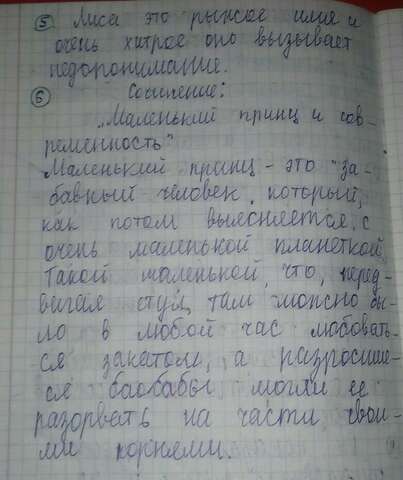 5 Лиса это рыжое имие и
очень хитрое оно вызывает
недопонимание.
6 Сочинение:
„Маленький принц и сов-
ременность"
Маленький принц - это "за-
бавный человек, который,
как потом выясняется, с
очень маленькой планеткой.
Такой маленькой, что, перед-
вигая стул, там можно бы-
ло в любой час любовать-
ся закатом, а разросшие-
ся баобабы могли её
разорвать на части свои-
ми корнями.